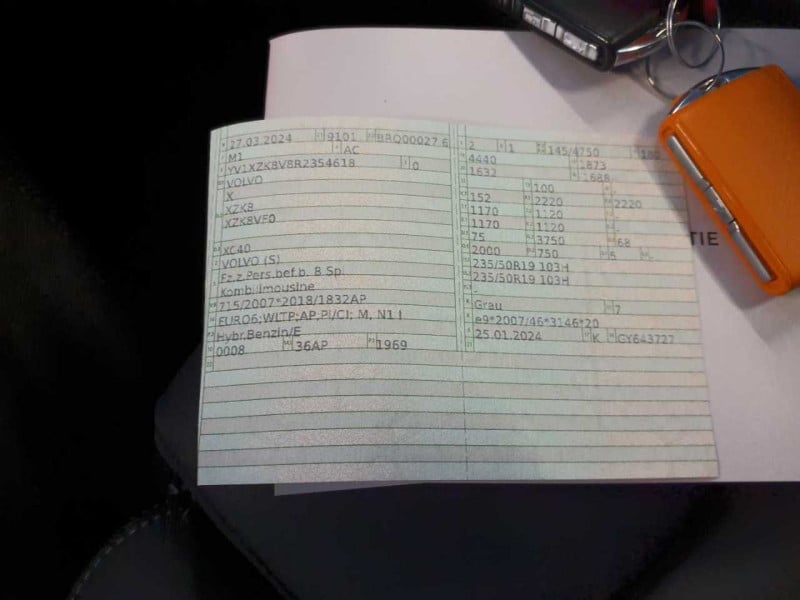 27.03.2024 9101 BRQ00027 6
M1 AC
YV1XZK8V8R2354618 0
VOLVO
X
XZK8
XZK8VE0
XC40
VOLVO (S)
Fz.z.Pers.bef.b. 8 Sp.
Kombilimousine
715/2007*2018/1832AP
EURO6;WLTP;AP,PI/CI; M, N1 I
Hybr.Benzin/E
0008 36AP 1969
2 1 145/4750
4440 1873
1632 1688
100 -
152 2220 2220
1170 1120 -
1170 1120 -
75 3750 68
2000 750 5
235/50R19 103H
235/50R19 103H
Grau 7
e9*2007/46*3146*20
25.01.2024 K GY643727
TIE